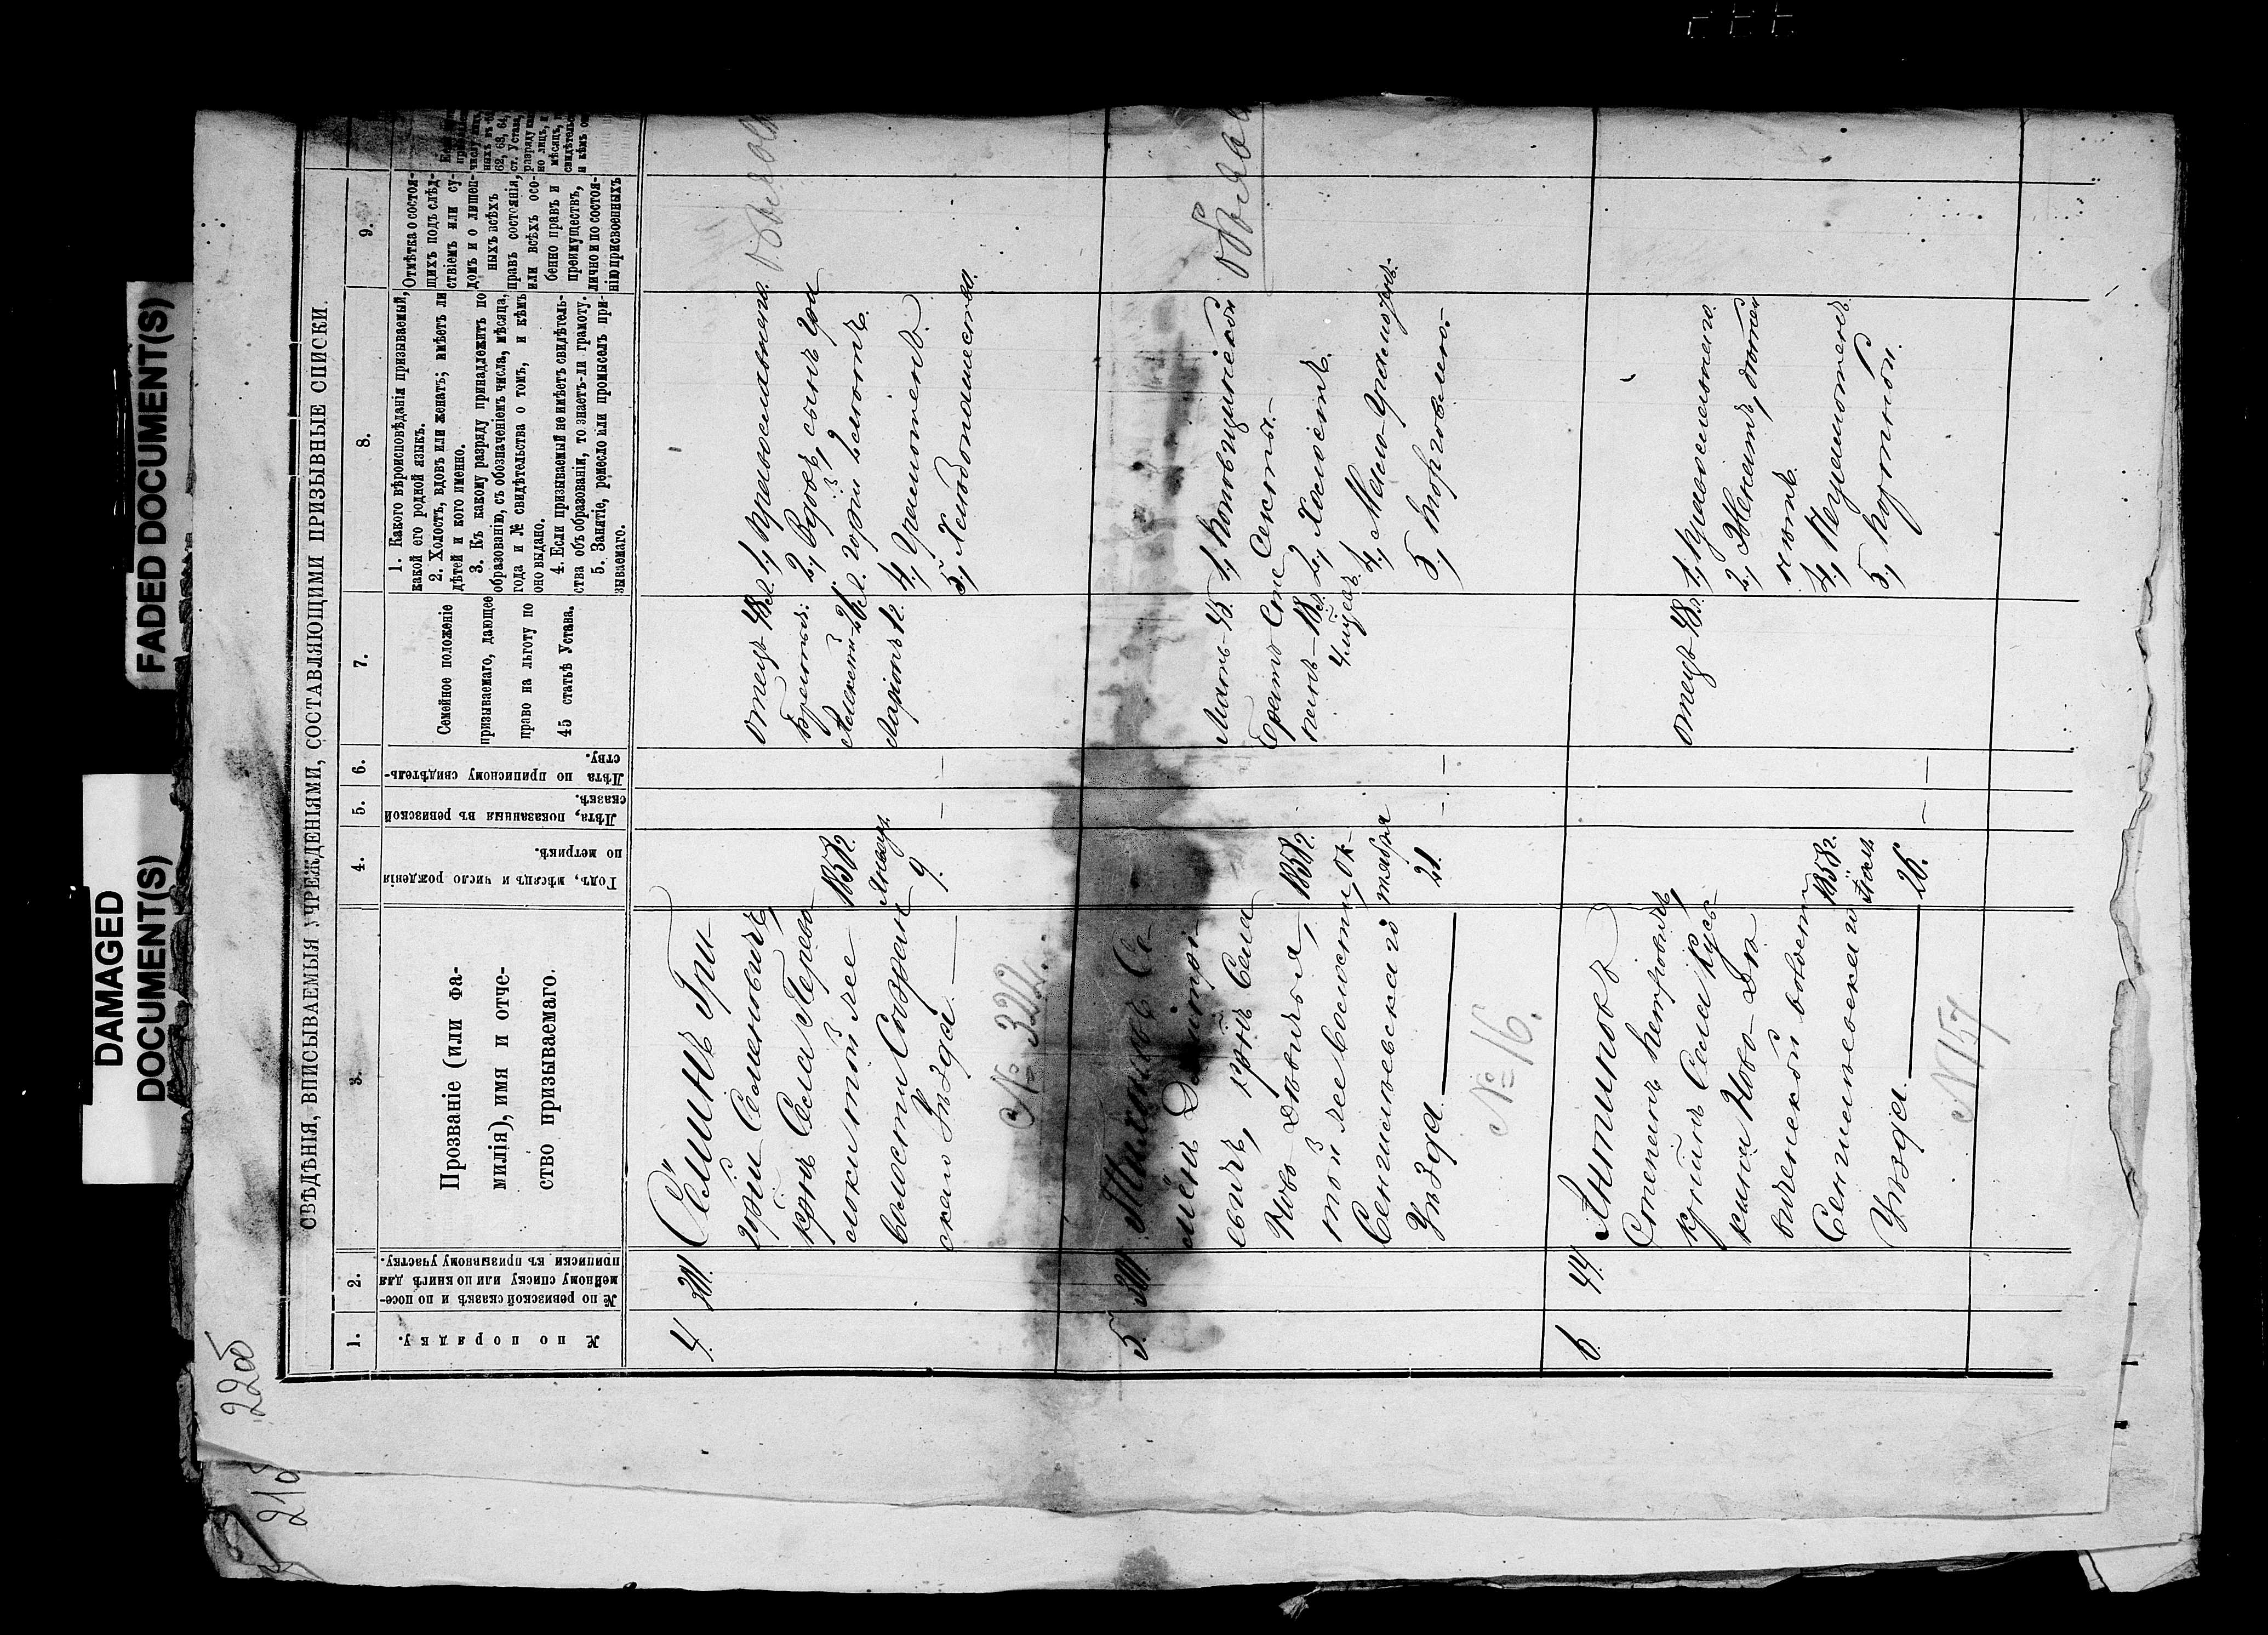 FADED DOCUMENT(S)
DAMAGED
DOCUMENT(S)
22об
СВѢДѢНІЯ, ВПИСЫВАЕМЫЯ УЧРЕЖДЕНІЯМИ, СОСТАВЛЯЮЩИМИ ПРИЗЫВНЫЕ СПИСКИ.
1.
2.
3.
4.
5.
6.
7.
8.
9.
№ по порядку.
№ по ревизской сказкѣ и по посе-
мейному списку или по книгѣ для
приписки къ призывному участку.
Прозваніе (или фа-
милія), имя и отче-
ство призываемаго.
Годъ, мѣсяцъ и число рожденія
по метрикѣ.
Лѣта, показанныя въ ревизской
сказкѣ.
Лѣта по приписному свидѣтель-
ству.
Семейное положеніе
призываемаго, дающее
право на льготу по
45 статьѣ Устава.
1. Какого вѣроисповѣданія призываемый,
какой его родной языкъ.
2. Холостъ, вдовъ или женатъ; имѣетъ ли
дѣтей и кого именно.
3. Къ какому разряду принадлежитъ по
образованію, съ обозначеніемъ числа, мѣсяца,
года и № свидѣтельства о томъ, и кѣмъ
оно выдано.
4. Если призываемый не имѣетъ свидѣтель-
ства объ образованіи, то знаетъ-ли грамоту.
5. Занятіе, ремесло или промыселъ при-
зываемаго.
Отмѣтка о состоя-
щихъ подъ слѣд-
ствіемъ или су-
домъ и о лишен-
ныхъ всѣхъ
правъ состоянія,
или всѣхъ осо-
бенно правъ и
преимуществъ,
лично и по состоя-
нію присвоенныхъ
4.
Сёминъ Гри-
горій Семеновичъ,
крнъ Села Перево-
локи той же
волости Сызран
скаго Уѣзда.
№ 322.
1858 г.
Января
9.
—
отецъ 48 л.
Братья:
Алексѣй 21 л.
Ларіонъ 12.
1., Православнаго.
2., Вдовъ, сынъ Гри
горій 2 лѣтъ.
4., Грамотенъ.
5., Хлебопашество.
5.
Са-
мёнъ Дмитрі-
евичъ, крнъ Села
Ново-Дѣвичья,
той же волости,
Сенгилѣевскаго
Уѣзда.
№ 16.
1858 г.
Ок-
тября
21.
—
—
Мать 45.
Братъ Сте
панъ - 18 л.
4. мѣсяц.
1., Поповщинской
Секты.-
2., Холостъ.
4., Мало-Грамотенъ.-
5., Торговлею.-
6.
44.
Антиповъ
Степанъ Петровичъ,
крнъ Села Кусь-
кина Ново-Дѣ-
виченской волости
Сенгилѣевскаго
Уѣзда.
№157
1858 г.
26.
—
отецъ 48 л.
1., Православнаго.
2., Женатъ, дѣтей
нѣтъ.
4., Неграмотенъ
5., Портной.